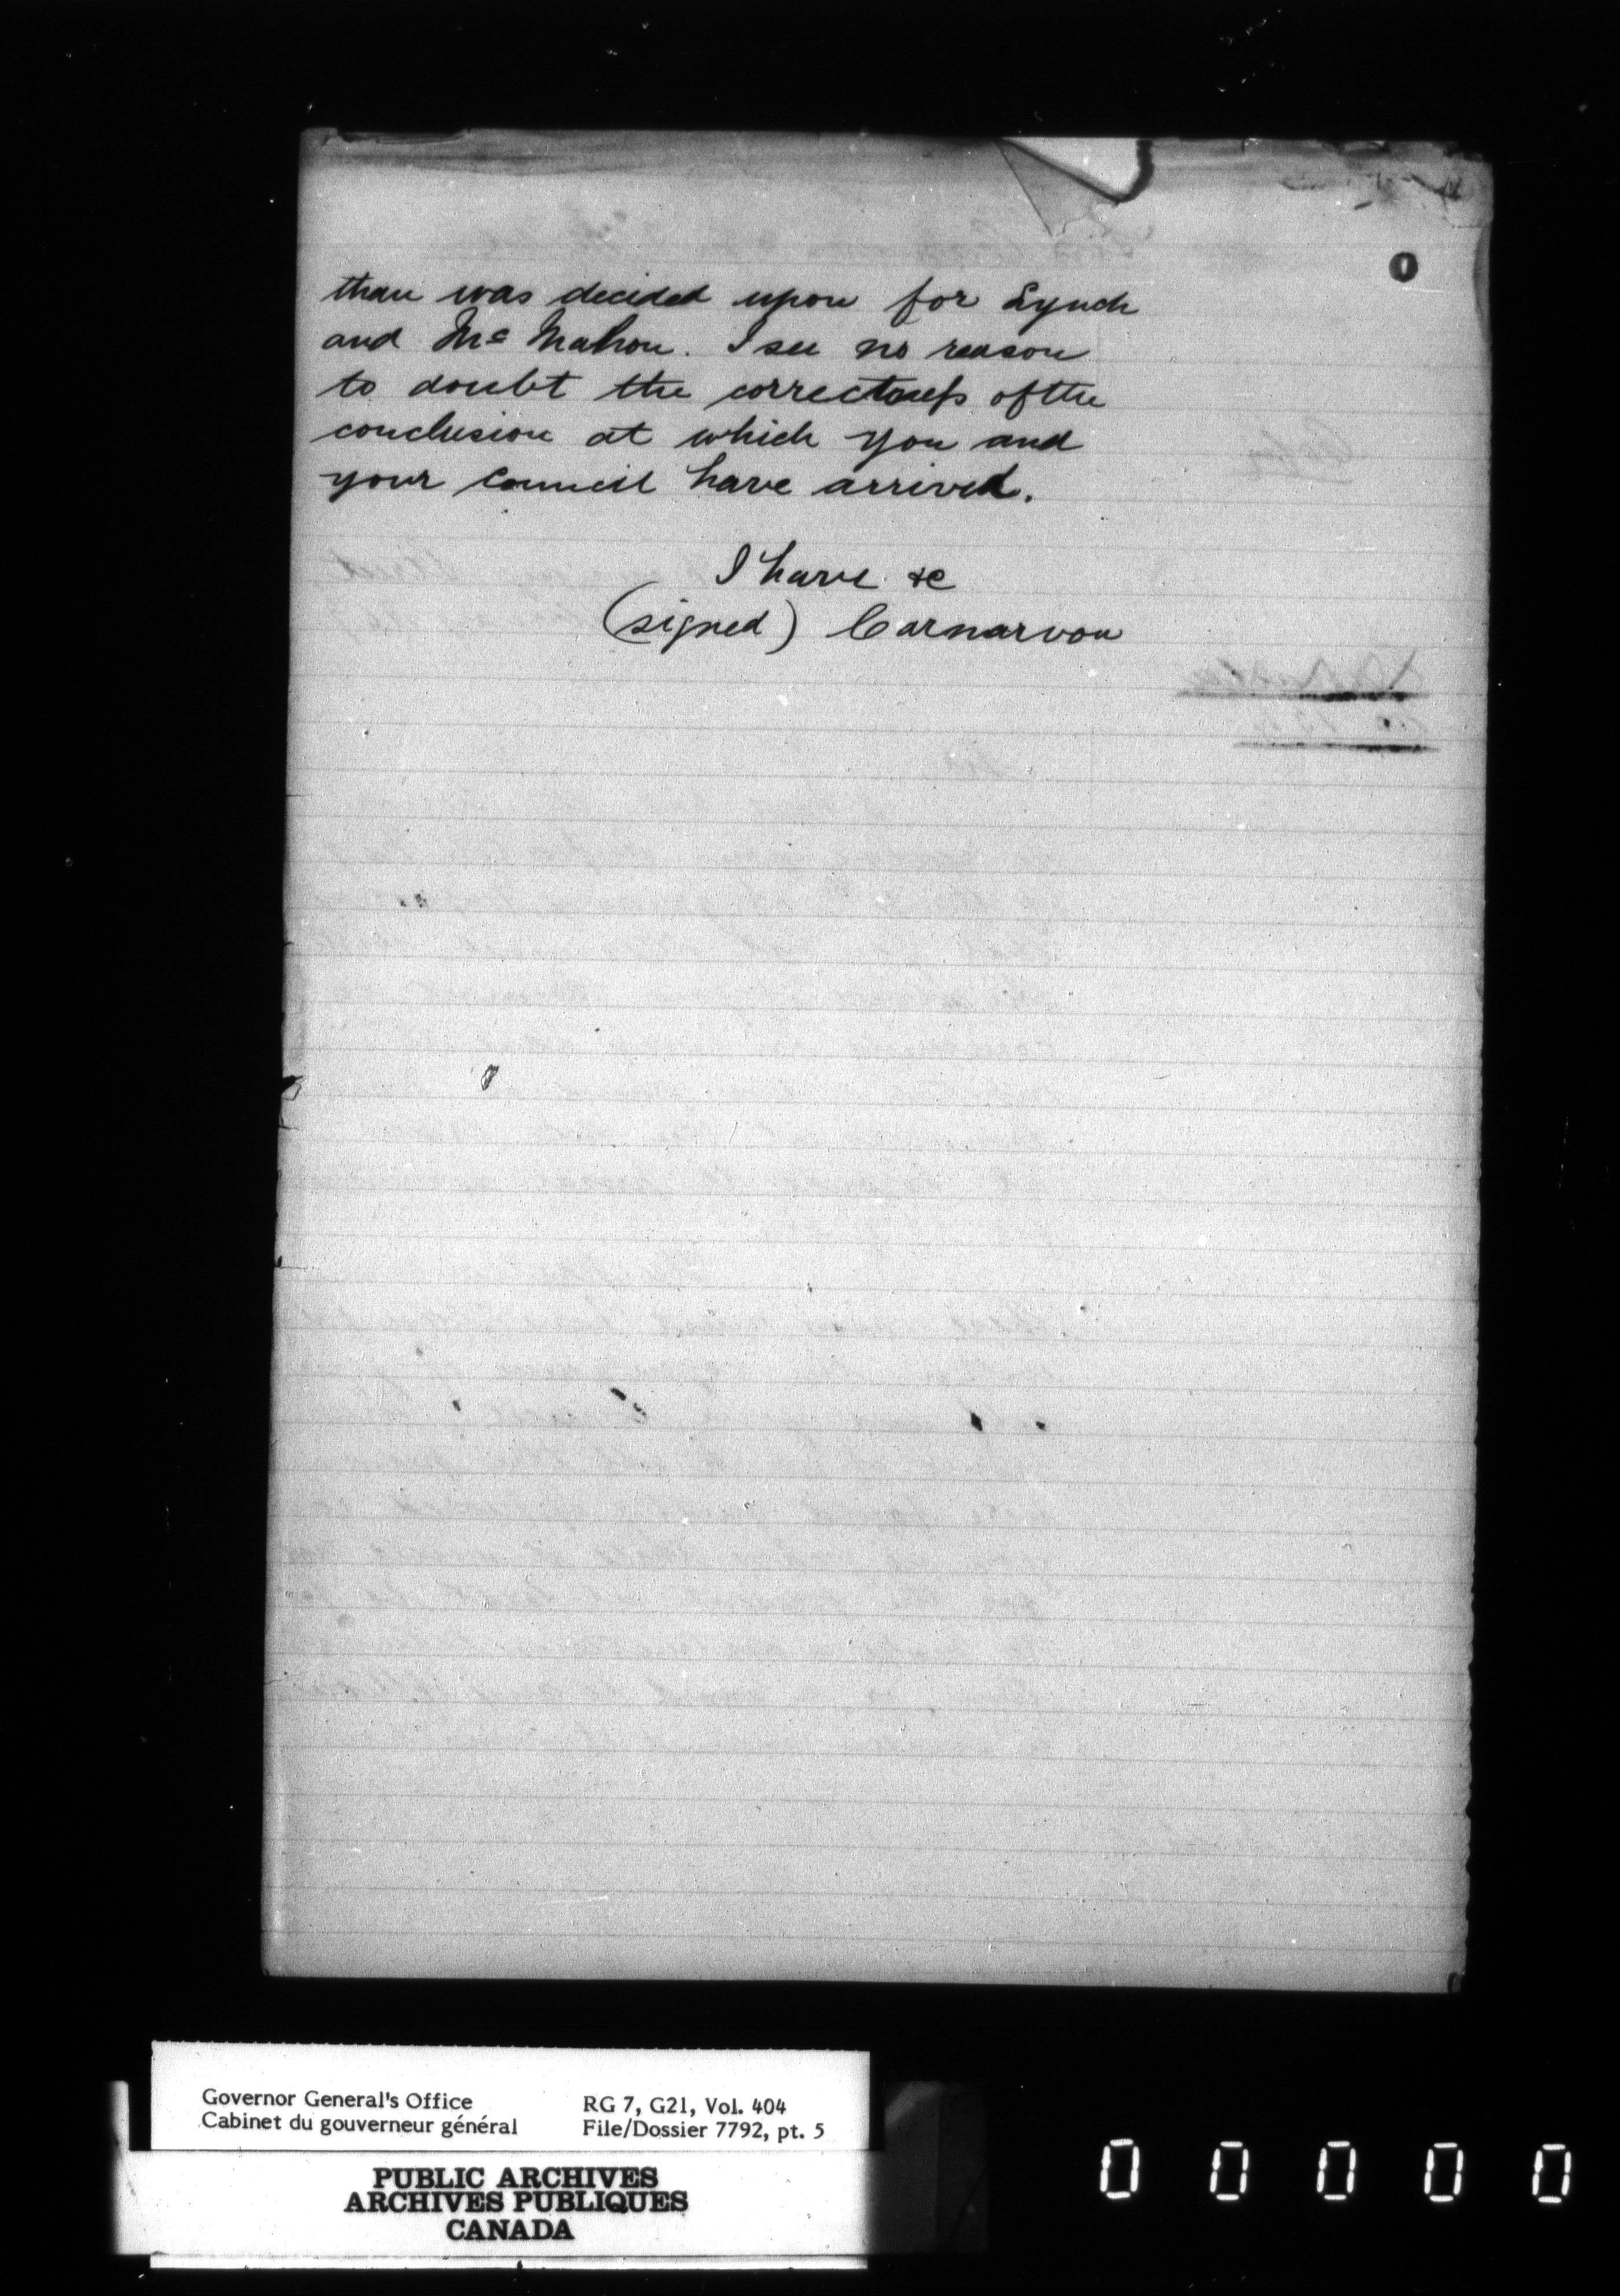 than was decided upon for Lynch
and Mc Mahon. I see no reason
to doubt the correctness of the
conclusion at which you and
your Council have arrived.
I have &c
(signed) Carnarvon
Governor General's Office
Cabinet du gouverneur général
RG 7, G21, Vol. 404
File/Dossier 7792, pt. 5
PUBLIC ARCHIVES
ARCHIVES PUBLIQUES
CANADA
0 0 0 0 0